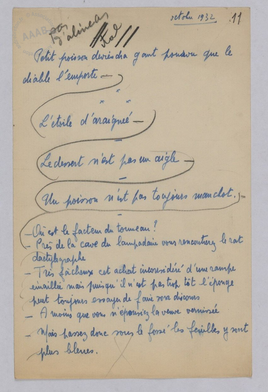 octobre 1932 11
pas
d'alinéas
Petit poisson deviendra gant pourvu que le
diable l'emporte —
L'étoile d'araignée —
Le dessert n'est pas un aigle —
Un poisson n'est pas toujours manchot. —
— Où est le facteur du tonneau ?
— Près de la cave du lampadaire vous rencontrerez le rat
dactylographe
— Très fâcheux cet achat inconsidéré d'une rampe
émaillée mais puisqu'il n'est pas trop tôt l'éponge
peut toujours essayer de faire sans discours
— A moins que vous n'épousiez la veuve vernissée
— Mais passez donc sous le fossé les feuilles y sont
plus bleues.